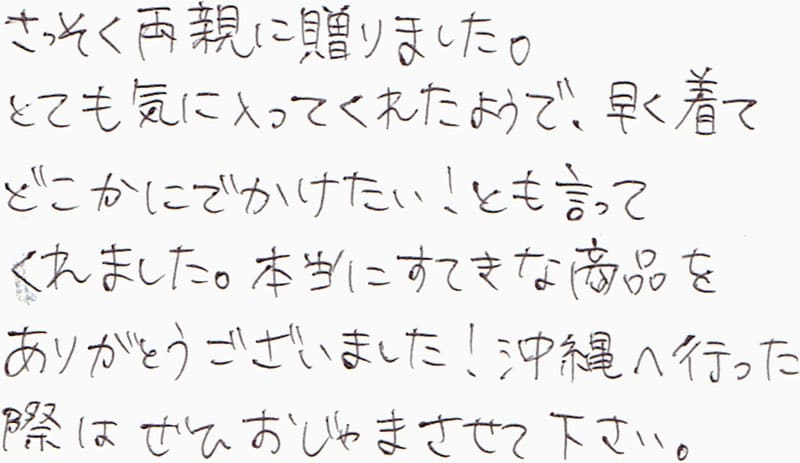 さっそく両親に贈りました。
とても気に入ってくれたようで、早く着て
どこかにでかけたい!とも言って
くれました。本当にすてきな商品を
ありがとうございました!沖縄へ行った
際はぜひおじゃまさせて下さい。